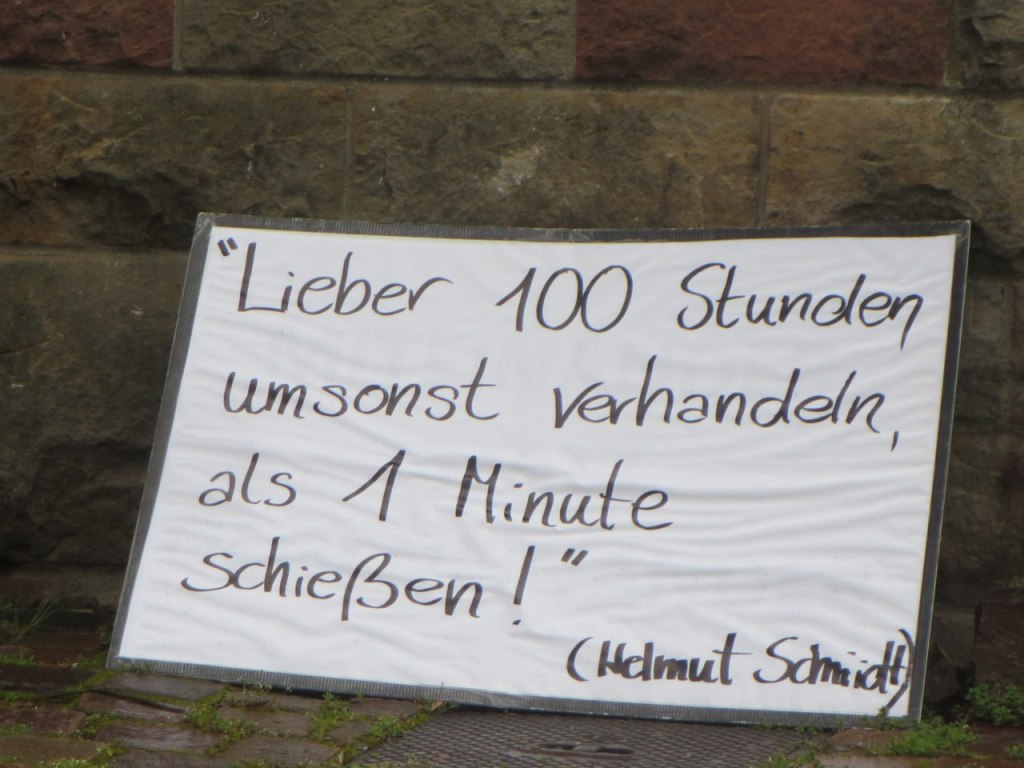 "Lieber 100 Stunden
umsonst verhandeln,
als 1 Minute
schießen!"
(Helmut Schmidt)